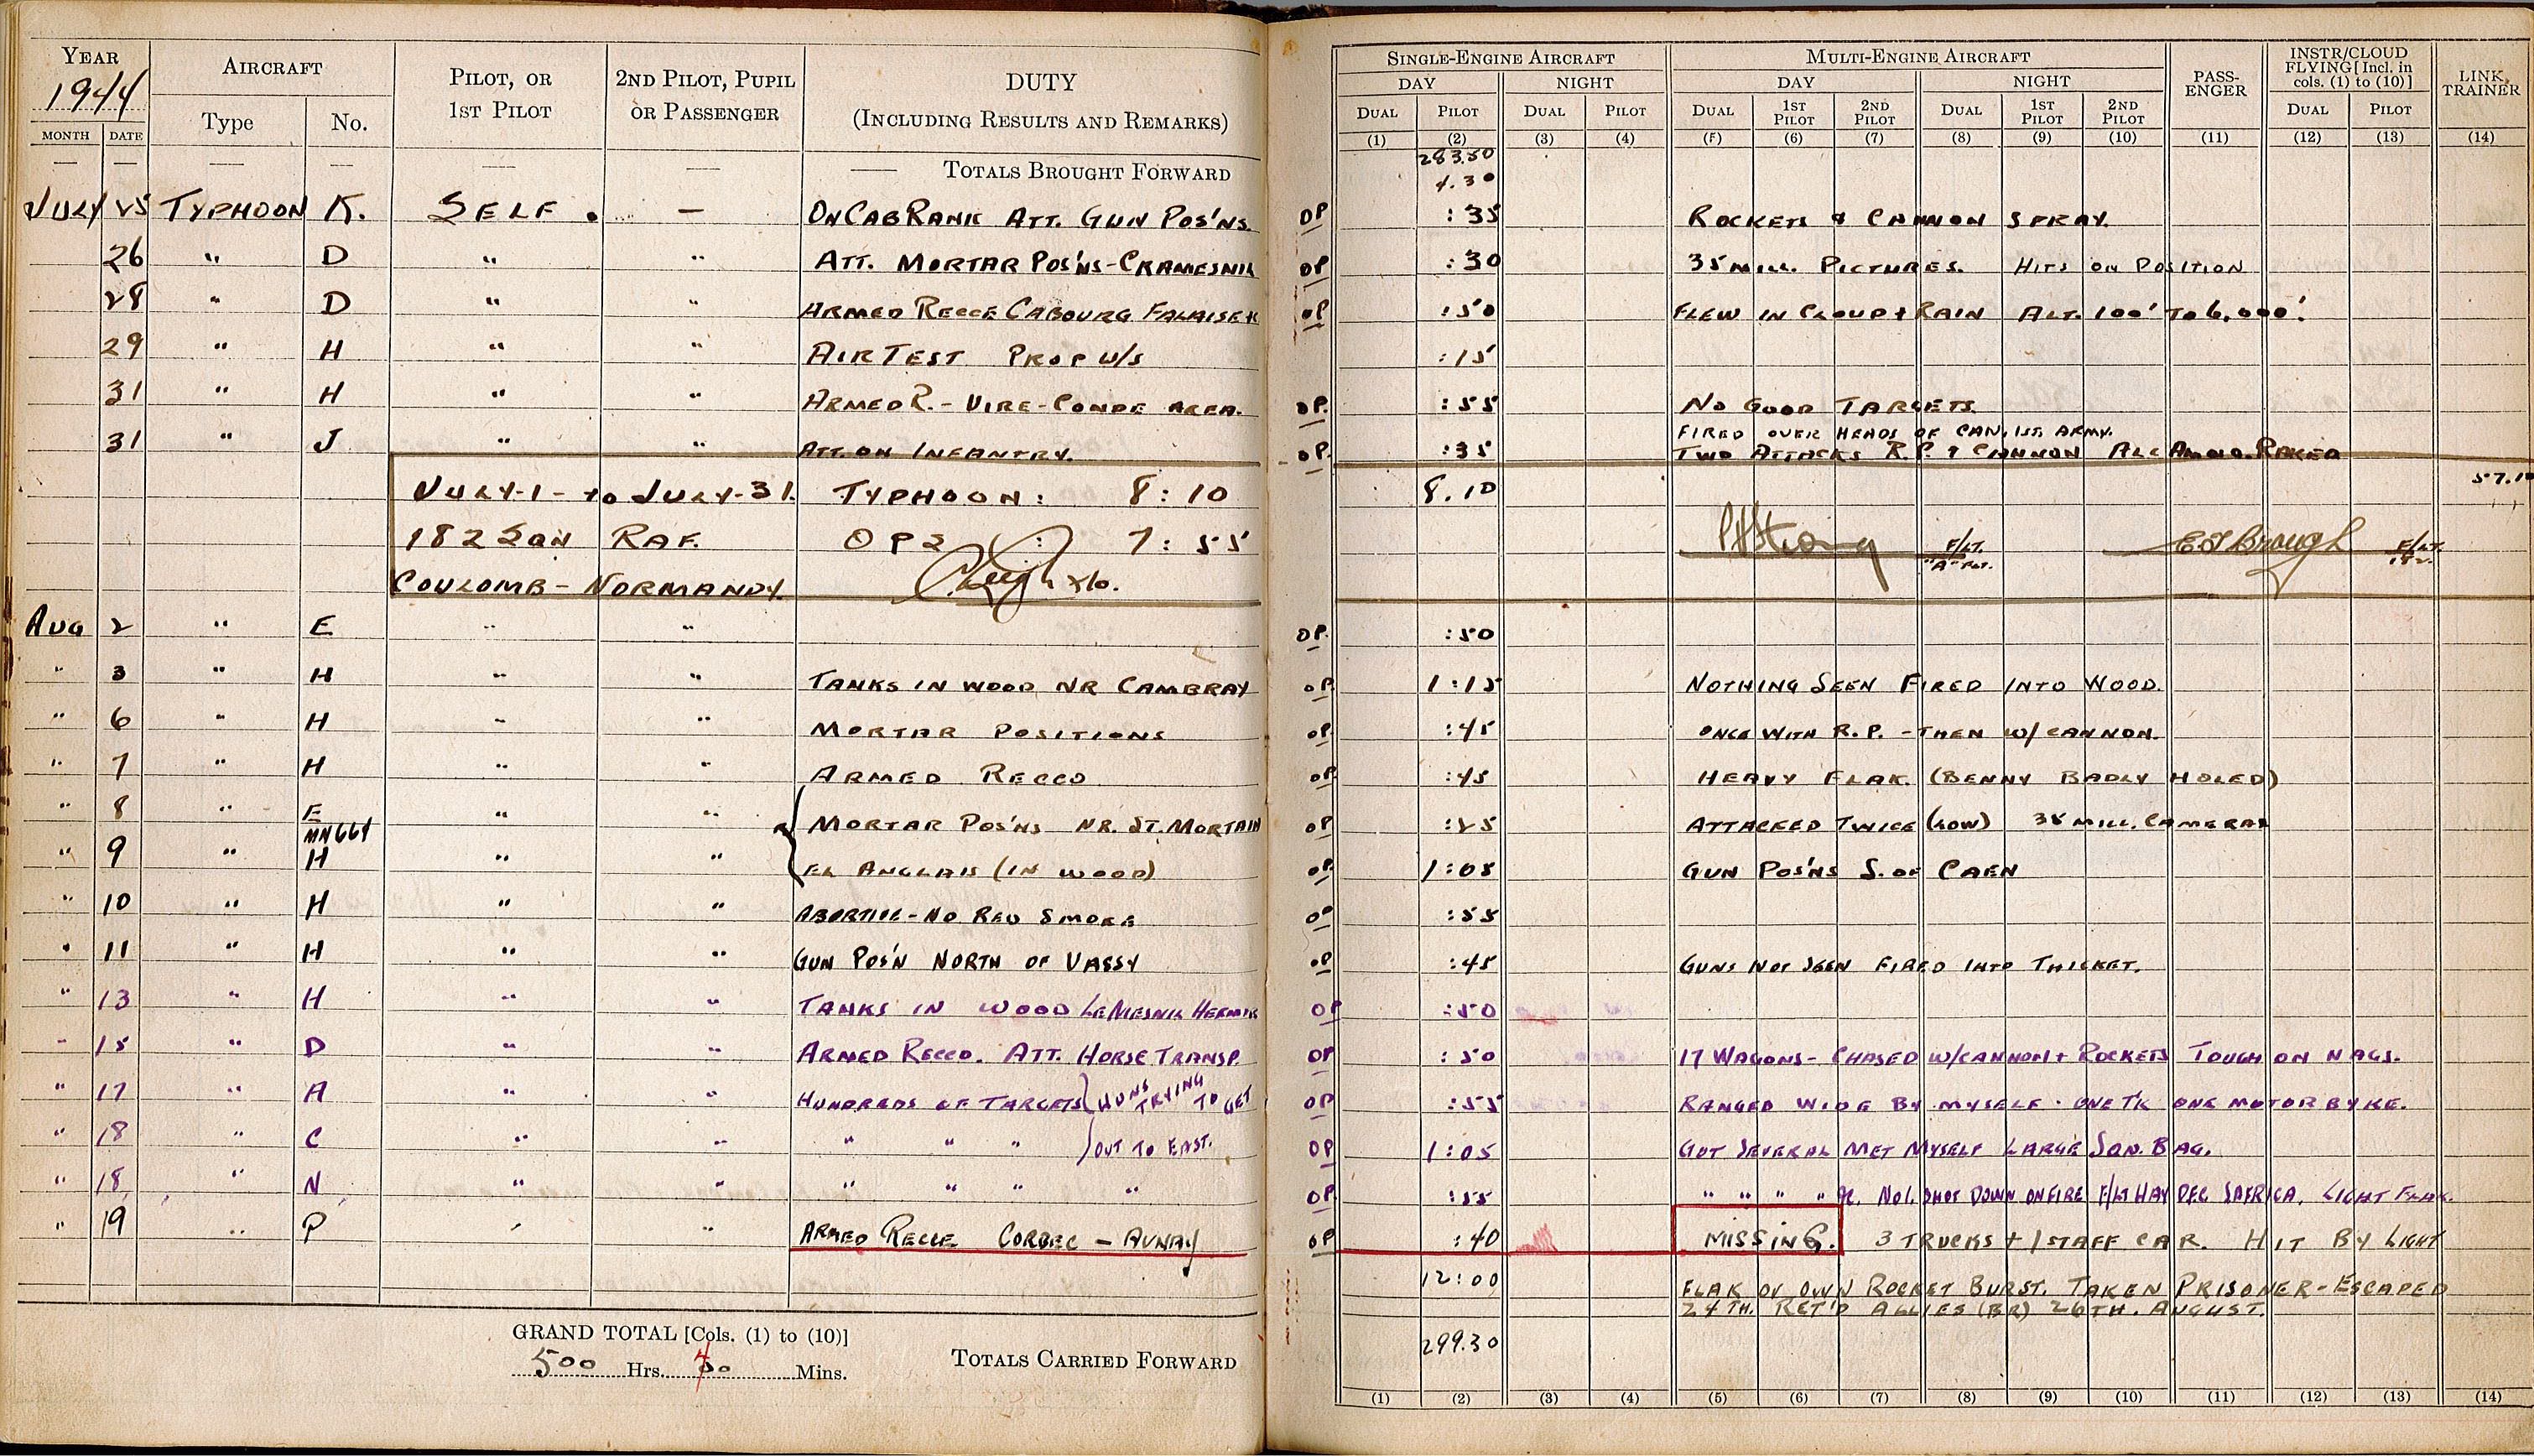 YEAR 1944 AIRCRAFT PILOT, OR 1ST PILOT 2ND PILOT, PUPIL OR PASSENGER DUTY (INCLUDING RESULTS AND REMARKS) SINGLE-ENGINE AIRCRAFT MULTI-ENGINE AIRCRAFT PASS-ENGER INSTR/CLOUD FLYING [Incl. in cols. (1) to (10)] LINK TRAINER
MONTH DATE Type No. DAY NIGHT DAY NIGHT
DUAL PILOT DUAL PILOT DUAL 1ST PILOT 2ND PILOT DUAL 1ST PILOT 2ND PILOT DUAL PILOT
(1) (2) (3) (4) (5) (6) (7) (8) (9) (10) (11) (12) (13) (14)
— — — — — — — TOTALS BROUGHT FORWARD 283.50
4.30
JULY 25 TYPHOON K. SELF. — ON CAB RANK ATT. GUN POS'NS. OP :35 ROCKETS & CANNON SPRAY.
26 " D " " ATT. MORTAR POS'NS - CRAMESNIL OP :30 35 MILL. PICTURES. HITS ON POSITION
28 " D " " ARMED RECCE CABOURG FALAISE OP :50 FLEW IN CLOUD + RAIN ALT. 100' TO 6,000'.
29 " H " " AIR TEST PROP U/S :15
31 " H " " ARMED R. - VIRE - CONDE AREA. OP. :55 NO GOOD TARGETS
FIRED OVER HEADS OF CAN. 1ST. ARMY.
31 " J " " ATT. ON INFANTRY. OP. :35 TWO ATTACKS R.P. & CANNON ALL AMMO. RAKED
JULY-1- TO JULY-31. TYPHOON: 8:10 8.10 57.10
182 SQN RAF. OPS : 7:55 F/LT. "A" FLT. E.J. Brough F/LT. 182
COULOMB - NORMANDY.
AUG 2 " E " " OP. :50
" 3 " H " " TANKS IN WOOD NR CAMBRAY OP 1:15 NOTHING SEEN FIRED INTO WOOD.
" 6 " H " " MORTAR POSITIONS OP. :45 ONCE WITH R.P. - THEN W/ CANNON.
" 7 " H " " ARMED RECCO OP. :45 HEAVY FLAK (BENNY BADLY HOLED)
" 8 " E " " MORTAR POS'NS NR. ST. MORTAIN OP :25 ATTACKED TWICE (LOW) 35 MILL. CAMERAS
MN664
" 9 " H " " EL ANGLAIS (IN WOOD) OP. 1:05 GUN POS'NS S. OF CAEN
" 10 " H " " ABORTIVE - NO RED SMOKE OP :55
" 11 " H " " GUN POS'N NORTH OF VASSY OP :45 GUNS NOT SEEN FIRED INTO THICKET.
" 13 " H " " TANKS IN WOOD LE MESNIL OP :50
" 15 " D " " ARMED RECCO. ATT. HORSE TRANSP. OP :50 17 WAGONS - CHASED W/CANNON + ROCKETS TOUGH ON NAGS.
" 17 " A " " HUNDREDS OF TARGETS HUNS TRYING TO GET OP :55 RANGED WIDE BY MYSELF. ONE TK ONE MOTOR BYKE.
" 18 " C " " " " " OUT TO EAST. OP 1:05 GOT SEVERAL MET MYSELF LARGE SQN. BAG.
" 18 " N " " " " " " OP :55 " " " " No 1. SHOT DOWN ON FIRE F/LT HAY DFC SAFRICA. LIGHT FLAK.
" 19 " P " " ARMED RECCE CORBEC - AUNAY OP :40 MISSING. 3 TRUCKS + 1 STAFF CAR. HIT BY LIGHT
12:00 FLAK OR OWN ROCKET BURST. TAKEN PRISONER - ESCAPED
24TH. RET'D ALLIES (BR) 26TH. AUGUST.
GRAND TOTAL [Cols. (1) to (10)]
500 Hrs. Mins. TOTALS CARRIED FORWARD 299.30
(1) (2) (3) (4) (5) (6) (7) (8) (9) (10) (11) (12) (13) (14)